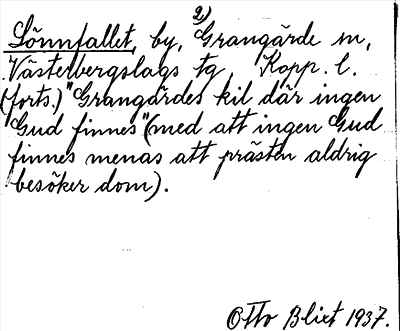 2)
Lönnfallet, by, Grangärde sn,
Västerbergslags tg Kopp. l.
(forts.) "Grangärdes kil där ingen
Gud finnes" (med att ingen Gud
finnes menas att prästen aldrig
besöker dom).
Otto Blixt 1937.